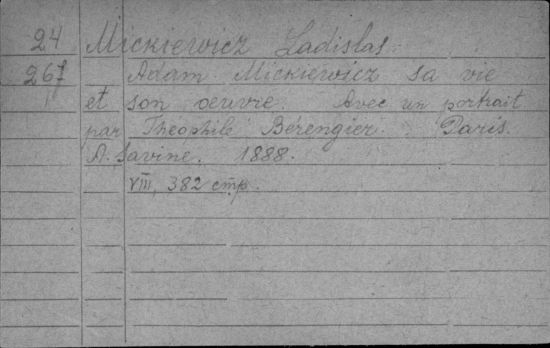 24 Mickiewicz Ladislas.
267 Adam Mickiewicz sa vie
et son œuvre. Avec un portrait
par Théophile Bérengier. Paris.
A. Savine. 1888.
VIII, 382 стр.